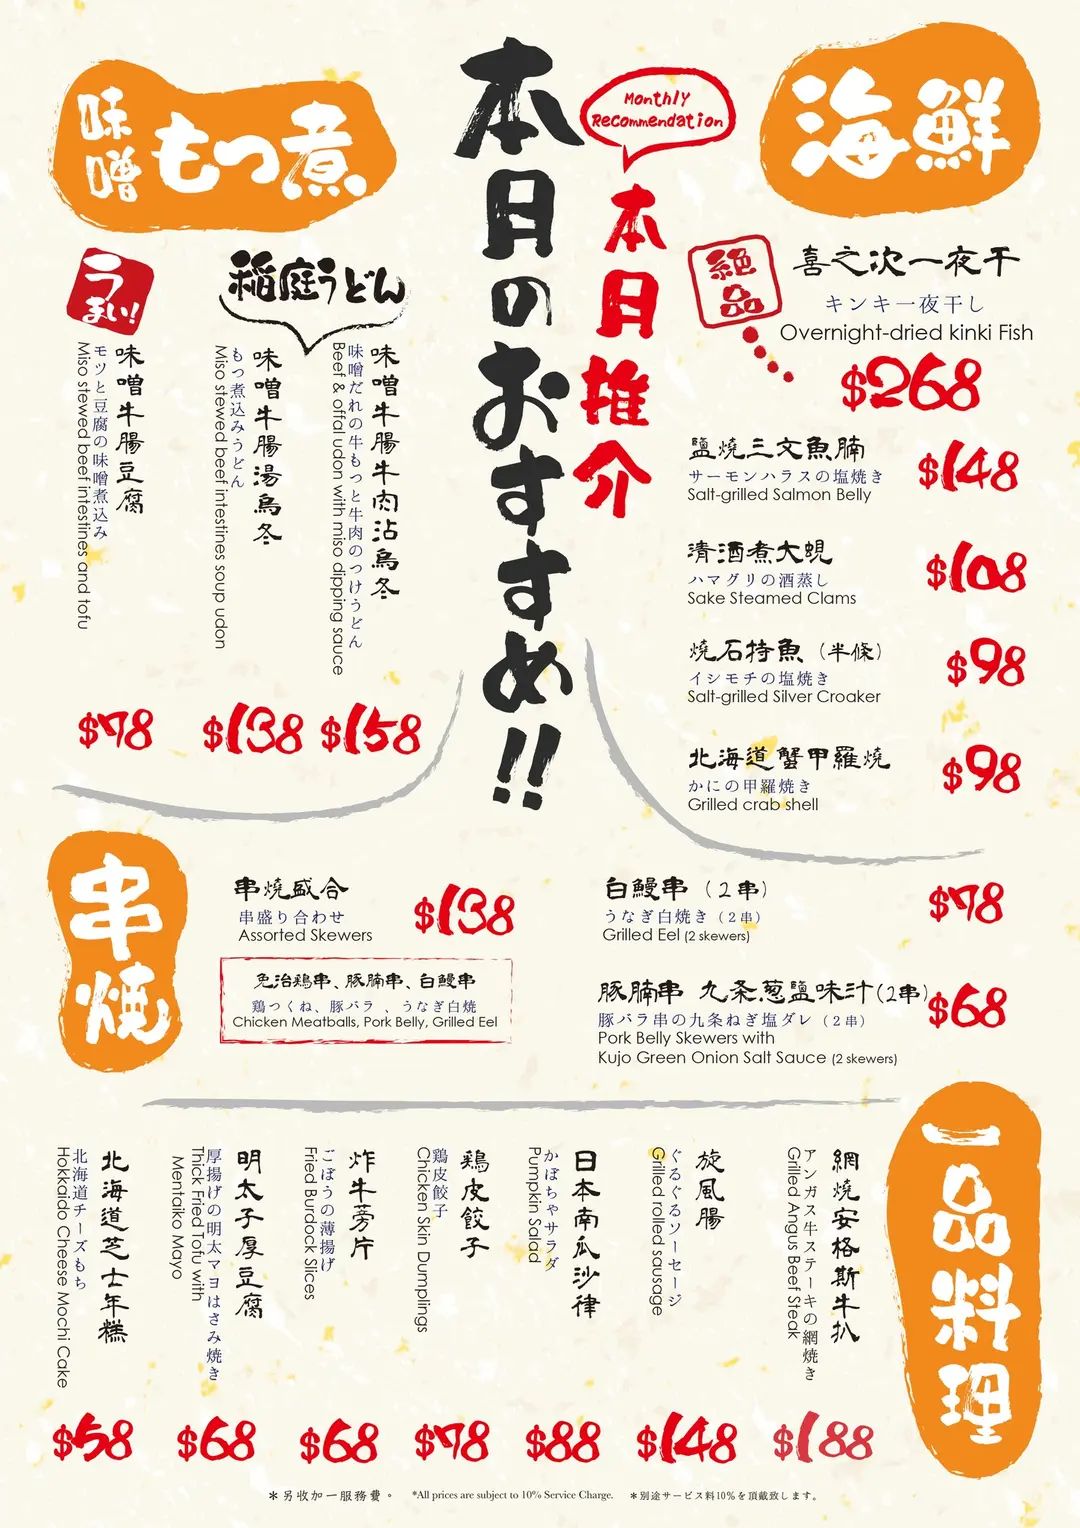 味噌もつ煮
うまい!
味噌牛腸豆腐
モツと豆腐の味噌煮込み
Miso stewed beef intestines and tofu
$78
稲庭うどん
味噌牛腸湯烏冬
もつ煮込みうどん
Miso stewed beef intestines soup udon
$138
味噌牛腸牛肉沾烏冬
味噌だれの牛もつと牛肉のつけうどん
Beef & offal udon with miso dipping sauce
$158
本日のおすすめ!!
Monthly
Recommendation
本日推介
海鮮
絶品
喜之次一夜干
キンキ一夜干し
Overnight-dried kinki Fish
$268
鹽燒三文魚腩
サーモンハラスの塩焼き
Salt-grilled Salmon Belly
$148
清酒煮大蜆
ハマグリの酒蒸し
Sake Steamed Clams
$108
燒石持魚（半條）
イシモチの塩焼き
Salt-grilled Silver Croaker
$98
北海道蟹甲羅燒
かにの甲羅焼き
Grilled crab shell
$98
串燒
串燒盛合
串盛り合わせ
Assorted Skewers
$138
免治鶏串、豚腩串、白鰻串
鶏つくね、豚バラ 、うなぎ白焼
Chicken Meatballs, Pork Belly, Grilled Eel
白鰻串（2串）
うなぎ白焼き（2串）
Grilled Eel (2 skewers)
$78
豚腩串 九条葱鹽味汁(2串)
豚バラ串の九条ねぎ塩ダレ（2串）
Pork Belly Skewers with
Kujo Green Onion Salt Sauce (2 skewers)
$68
一品料理
網燒安格斯牛扒
アンガス牛ステーキの網焼き
Grilled Angus Beef Steak
$188
旋風腸
ぐるぐるソーセージ
Grilled rolled sausage
$148
日本南瓜沙律
かぼちゃサラダ
Pumpkin Salad
$88
鶏皮餃子
鶏皮餃子
Chicken Skin Dumplings
$78
炸牛蒡片
ごぼうの薄揚げ
Fried Burdock Slices
$68
明太子厚豆腐
厚揚げの明太マヨはさみ焼き
Thick Fried Tofu with
Mentaiko Mayo
$68
北海道芝士年糕
北海道チーズもち
Hokkaido Cheese Mochi Cake
$58
＊另收加一服務費。 *All prices are subject to 10% Service Charge. ＊別途サービス料10％を頂戴致します。